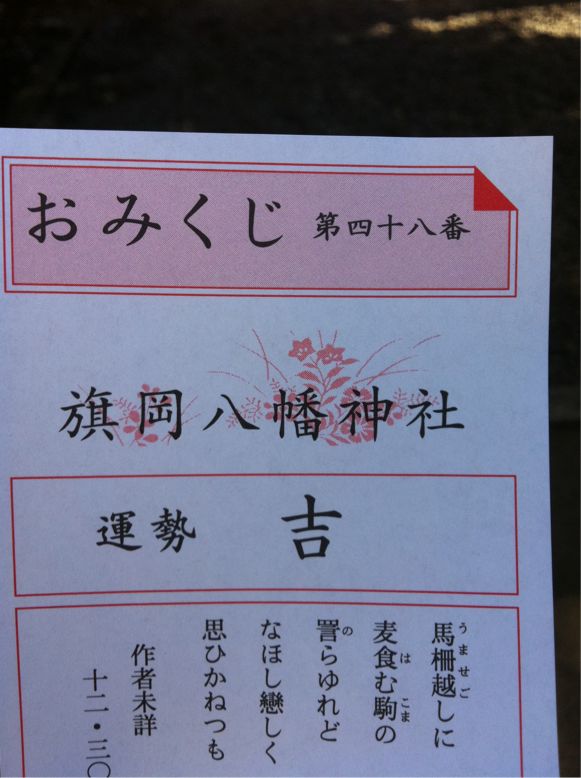 おみくじ 第四十八番
旗岡八幡神社
運勢 吉
馬柵越しに
うませご
麦食む駒の
は こま
詈らゆれど
の
なほし戀しく
思ひかねつも
作者未詳
十二・三〇